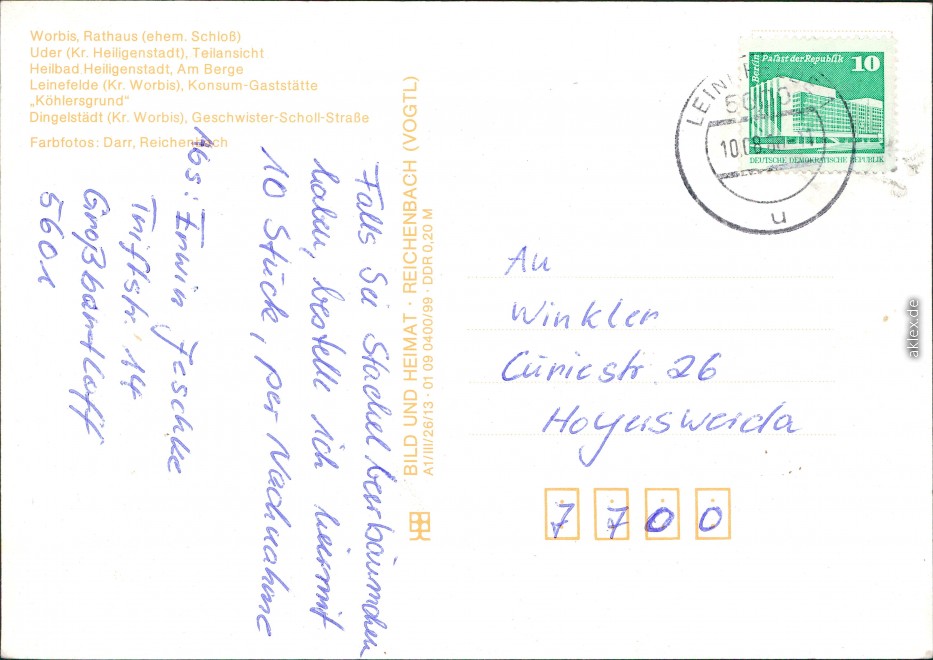 Worbis, Rathaus (ehem. Schloß)
Uder (Kr. Heiligenstadt), Teilansicht
Heilbad Heiligenstadt, Am Berge
Leinefelde (Kr. Worbis), Konsum-Gaststätte
„Köhlersgrund“
Dingelstädt (Kr. Worbis), Geschwister-Scholl-Straße
Farbfotos: Darr, Reichenbach
Falls Sei Stachelbeerbäumchen
haben, bestelle ich hiermit
10 Stück, per Nachnahme
Abs: Erwin Jeschke
Triftstr. 14
Großbartloff
5601
BILD UND HEIMAT · REICHENBACH (VOGTL)
A1/III/26/13 · 01 09 0400/99 · DDR 0,20 M
Berlin
Palast der Republik
10
DEUTSCHE DEMOKRATISCHE REPUBLIK
10.08.
u
An
Winkler
Curiestr. 26
Hoyerswerda
7700
aklex.de